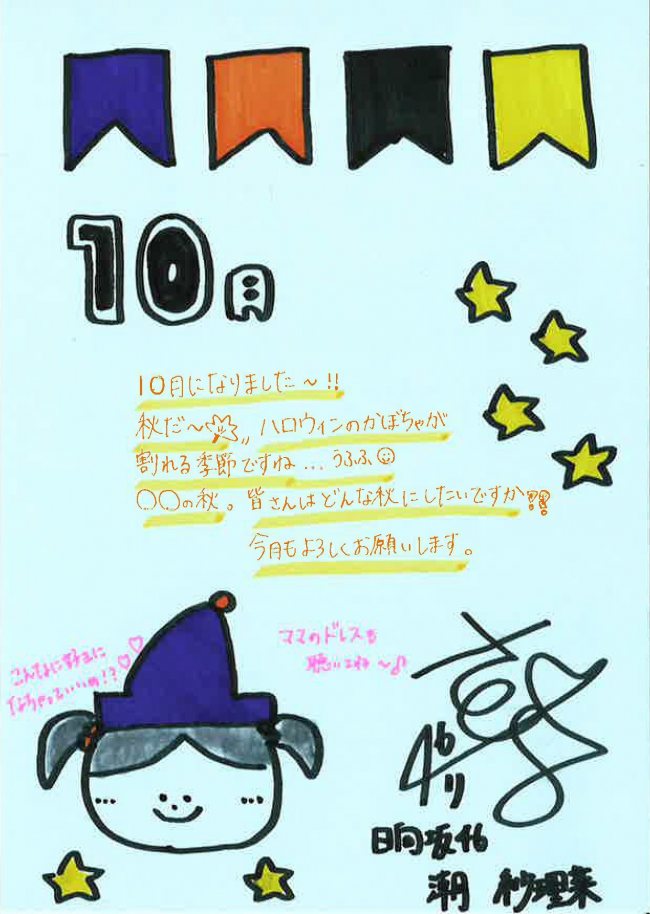 10月
10月になりました〜!!
秋だ〜 ハロウィンのかぼちゃが
割れる季節ですね...うふふ
○○の秋。皆さんはどんな秋にしたいですか?!
今月もよろしくお願いします。
こんなに好きに
なっちゃっていいの!?♡♡
ママのドレスも
聴いてね〜♪
日向坂46
潮 紗理菜